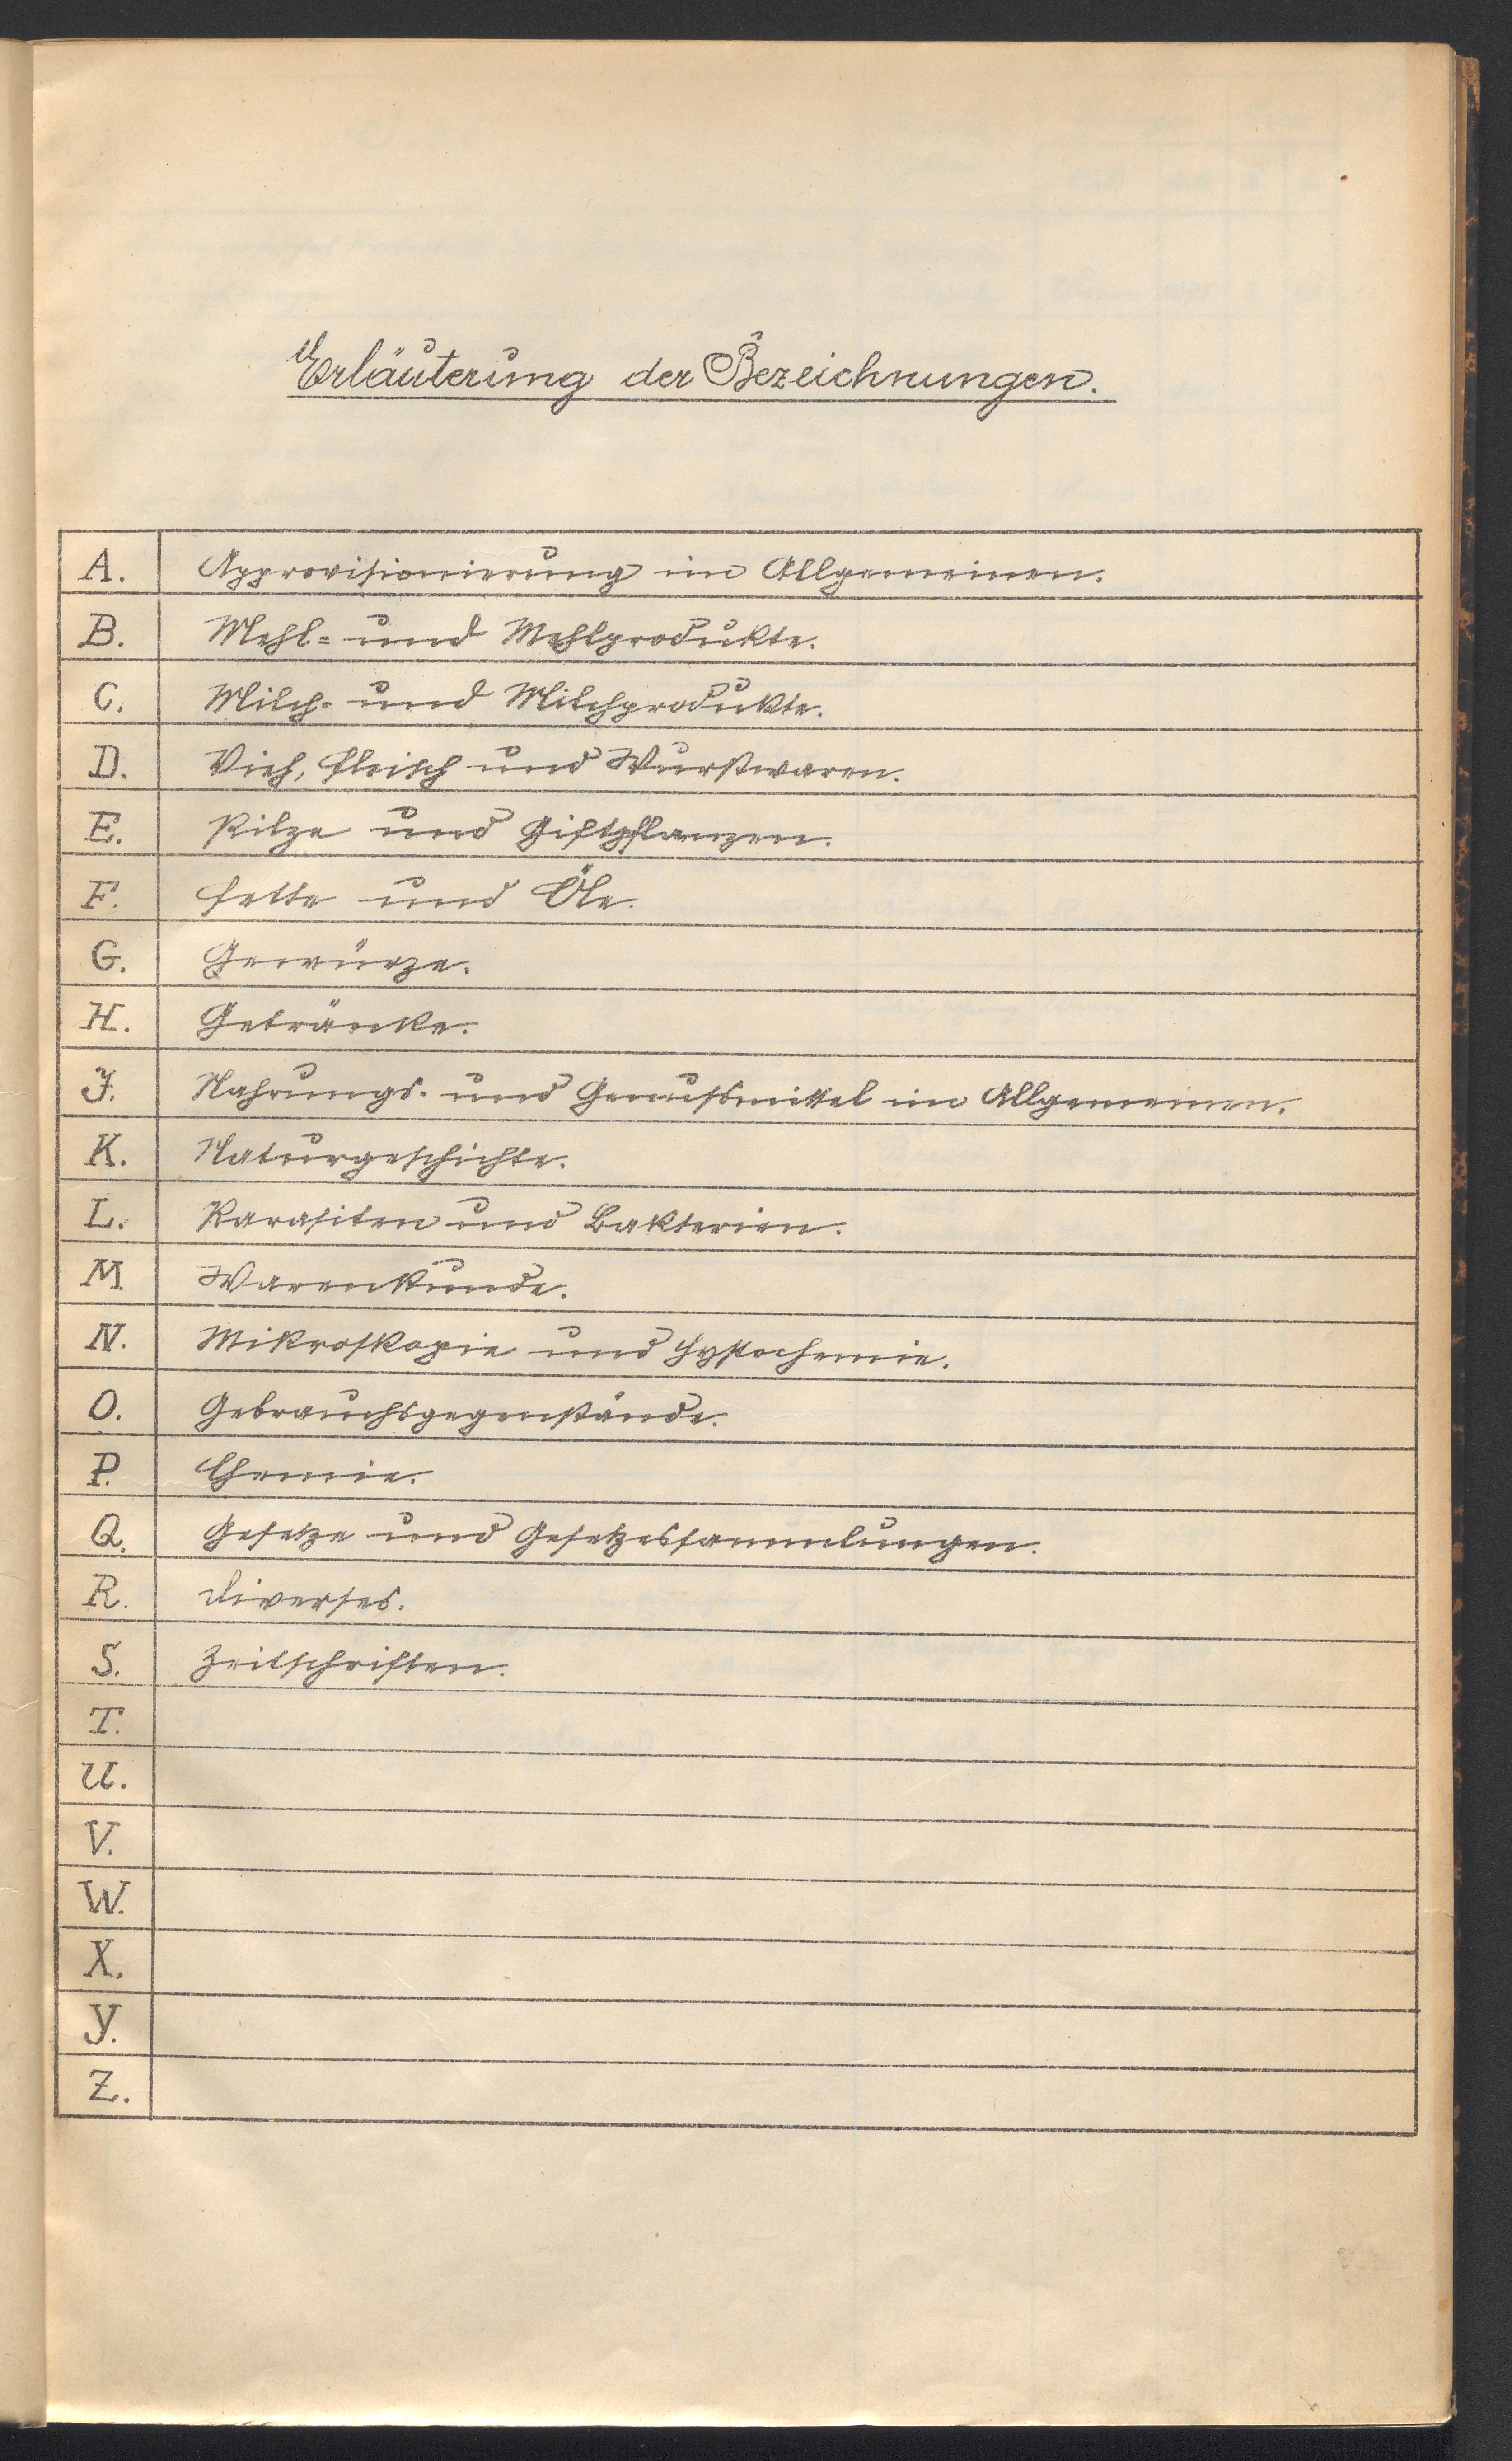 Erläuterung der Bezeichnungen.
A. Approvisionierung im Allgemeinen.
B. Mehl- und Mehlprodukte.
C. Milch- und Milchprodukte.
D. Vieh, Fleisch und Wurstwaren.
E. Pilze und Giftpflanzen.
F. Fette und Öle.
G. Gewürze.
H. Getränke.
J. Nahrungs- und Genussmittel im Allgemeinen.
K. Naturgeschichte.
L. Parasiten und Bakterien.
M. Warenkunde.
N. Mikroskopie und Hystochemie.
O. Gebrauchsgegenstände.
P. Chemie.
Q. Gesetze und Gesetzessammlungen.
R. Diverses.
S. Zeitschriften.
T.
U.
V.
W.
X.
Y.
Z.